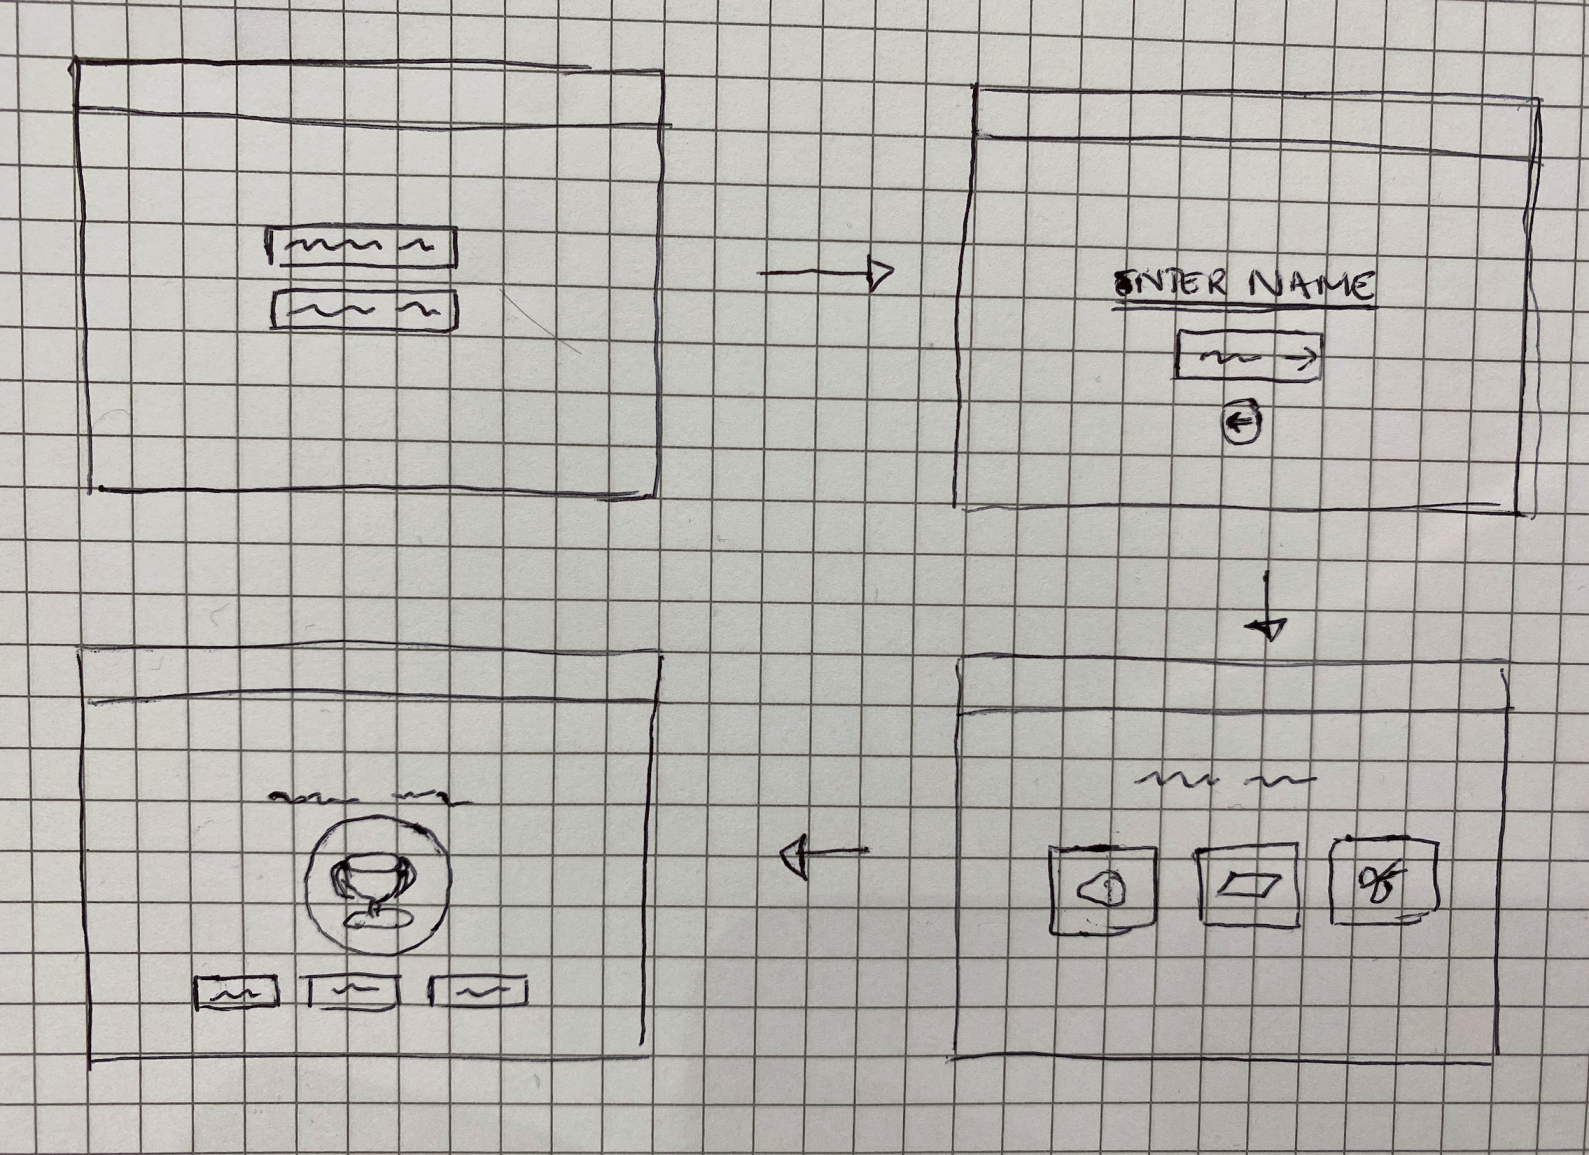 ENTER NAME